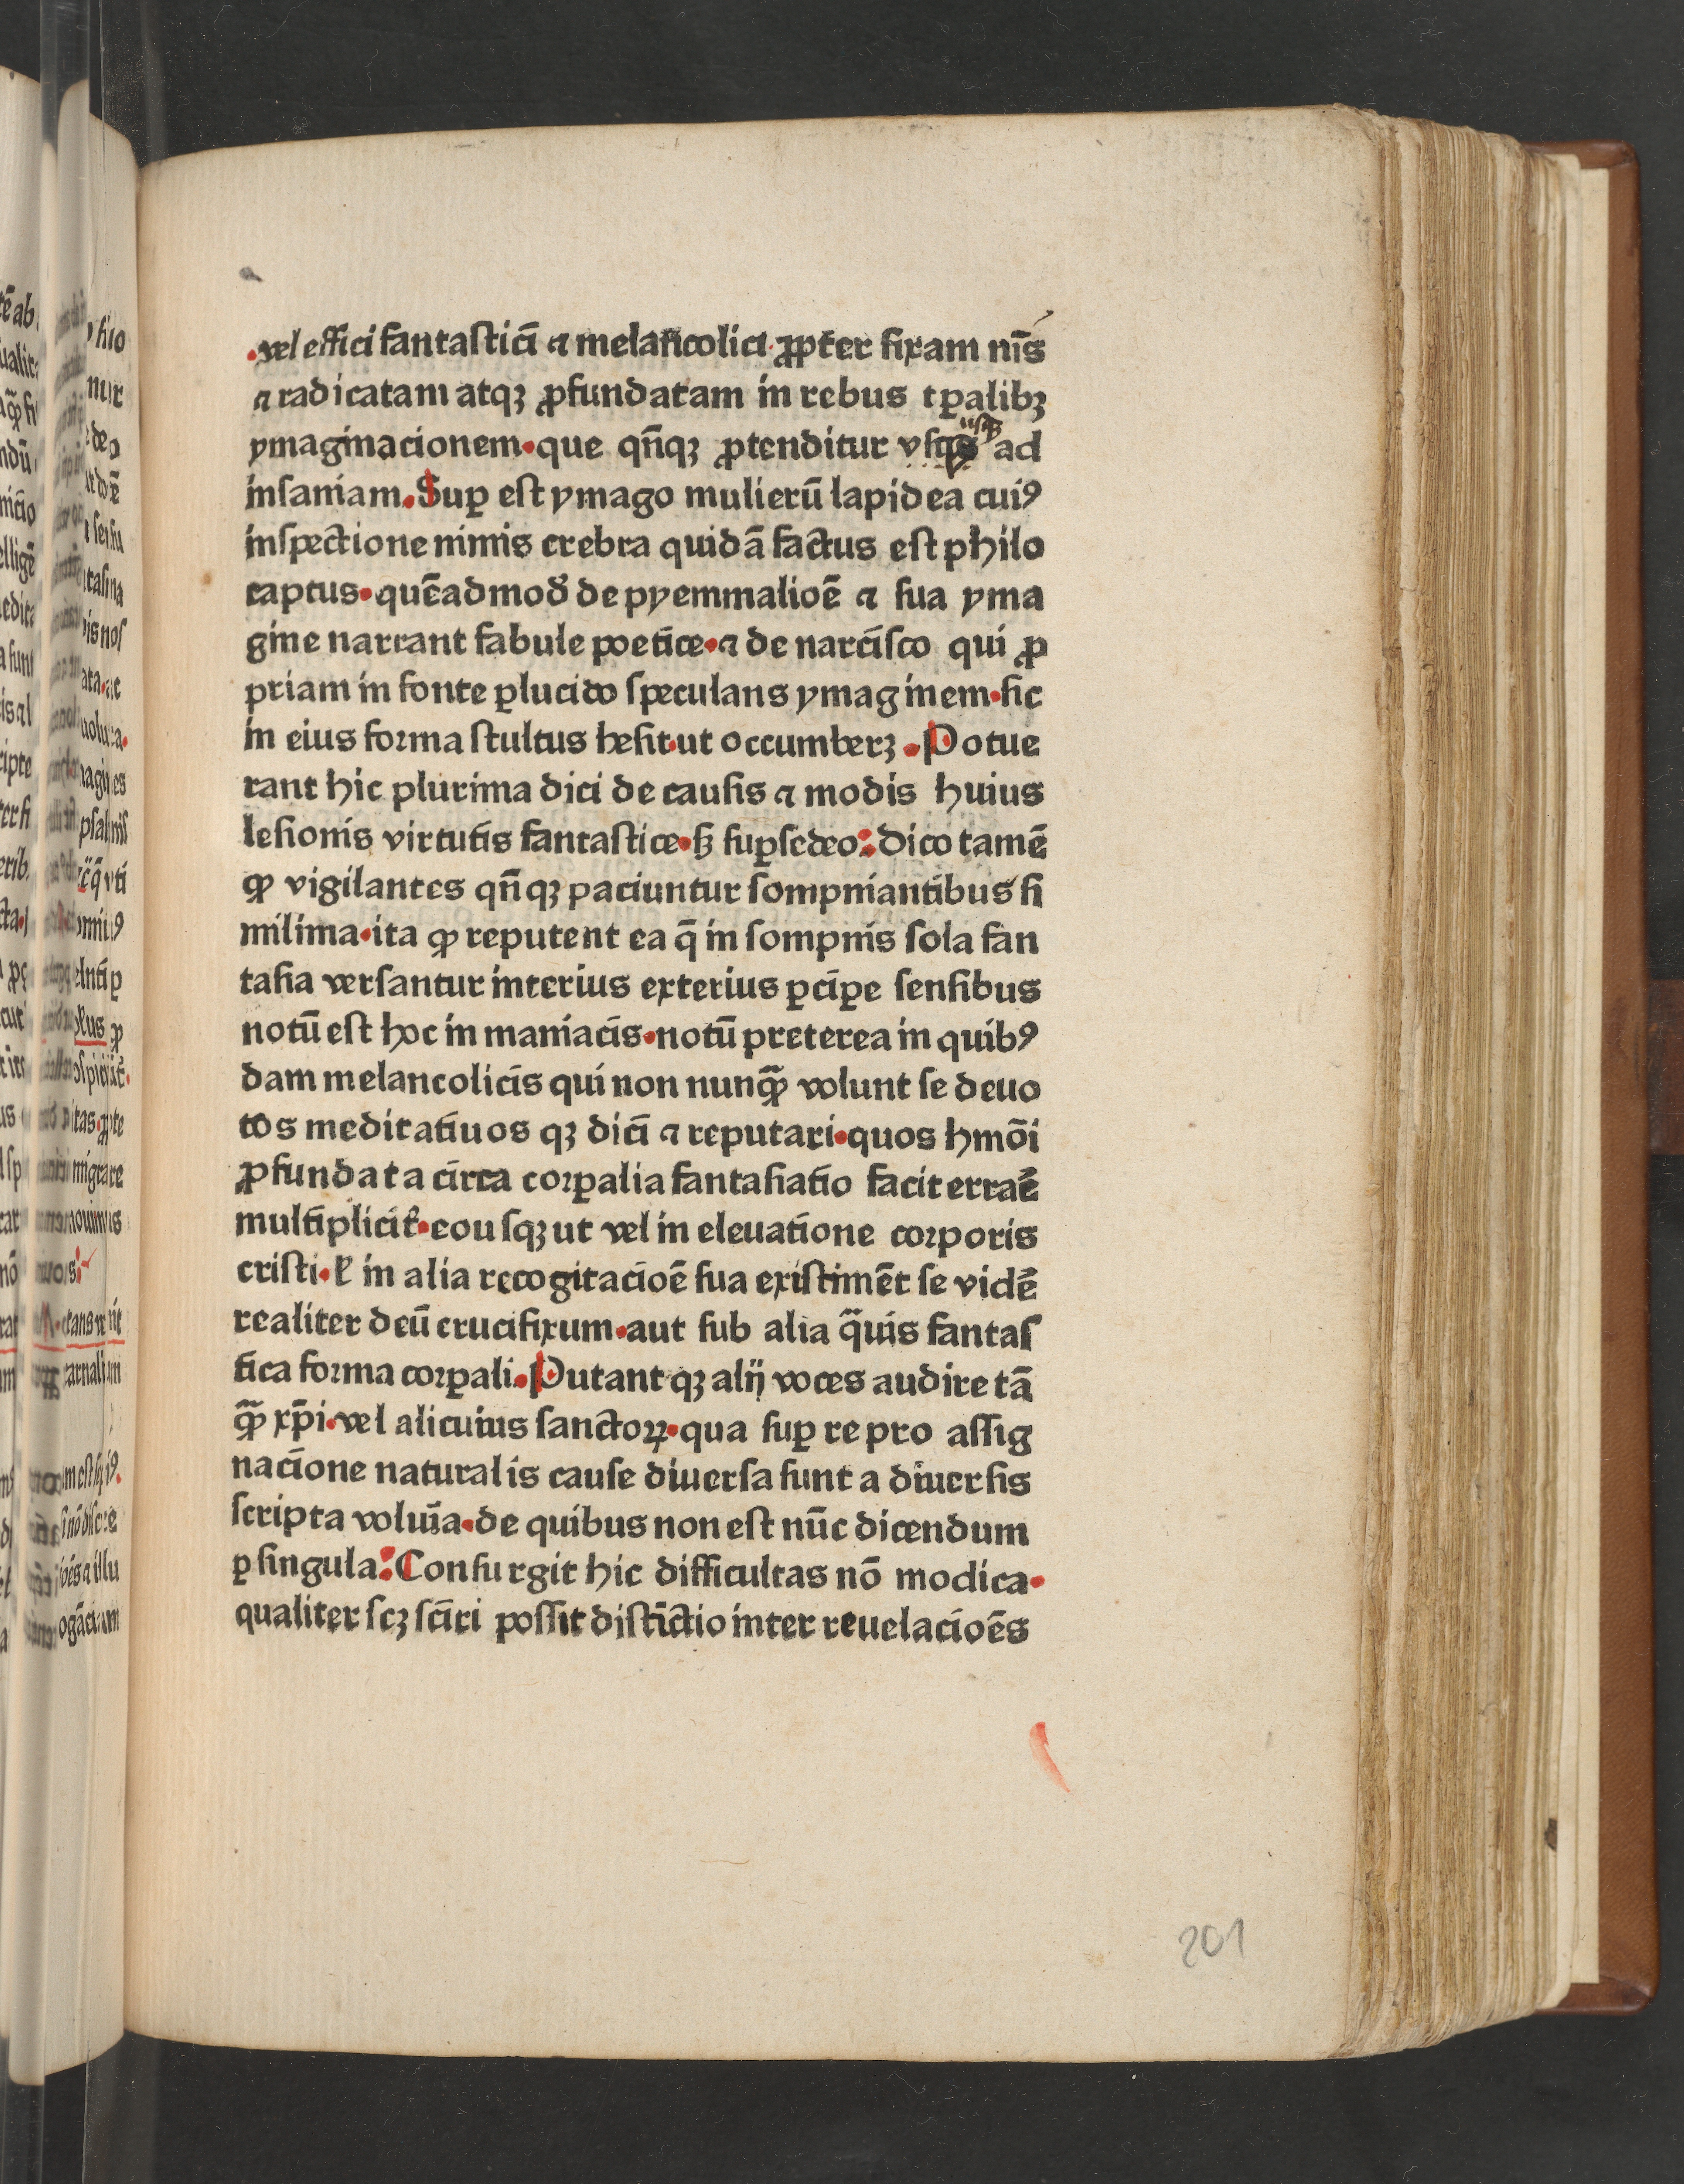 .vel effici fantastici ⁊ melancolici ꝓpter fixam nīs
⁊ radicatam atqꝫ ꝓfundatam in rebus tꝑalibꝫ
ymaginacionem.que qn̄qꝫ ꝓtenditur vſqꝫ ad
inſaniam.Suꝑ eſt ymago mulierū lapidea cuiꝰ
inſpectione nimis crebra quidā factus eſt philo
captus.quēadmod̄ de pyemmalioē ⁊ ſua yma
gine narrant fabule poetice.⁊ de narciſco qui ꝓ
priam in fonte ꝑlucido ſpeculans ymaginem.ſic
in eius forma ſtultus heſit.ut occumberꝫ .Potue
rant hic plurima dici de cauſis ⁊ modis huius
leſionis virtutis fantaſtice.ſꝫ ſuꝑſedeo:Dico tamē
ꝙ vigilantes qn̄qꝫ paciuntur ſompniantibus ſi
milima.ita ꝙ reputent ea q̄ in ſompnis ſola fan
taſia verſantur interius exterius ꝑciꝑe ſenſibus
notū eſt hoc in maniacis.notū preterea in quibꝰ
dam melancolicis qui non nunꝙ̄ volunt ſe deuo
tos meditatiuos qꝫ dici ⁊ reputari.quos hmōi
ꝓfundata circa corꝑalia fantaſiatio facit erraē
multipliciť.eouſqꝫ ut vel in eleuatione corporis
criſti.ł in alia recogitacioē ſua exiſtimēt ſe vidē
realiter deū crucifixum.aut ſub alia q̄uis fantaſ
tica forma corꝑali.Putant qꝫ alij voces audire tā
ꝙ̄ xp̄i.vel alicuius ſanctoꝝ.qua ſuꝑ re pro aſſig
nacione naturalis cauſe diuerſa ſunt a diuerſis
ſcripta voluīa.de quibus non eſt nūc dicendum
ꝑ ſingula:Conſurgit hic difficultas nō modica.
qualiter ſcꝫ ſciri poſſit diſtīctio inter reuelacioēs
201